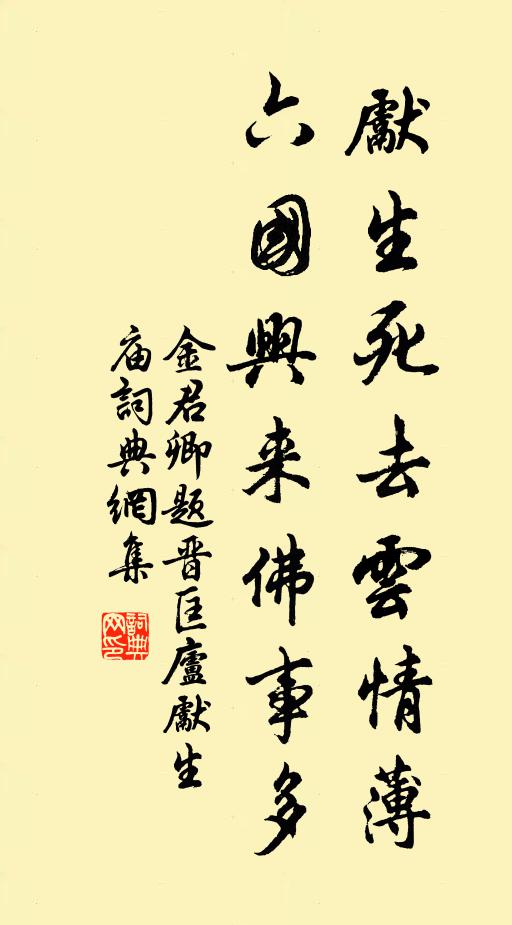 獻生死去雲情薄
六國興来佛事多
金君卿题晋匡廬獻生
庙詞典網集
詞典网印